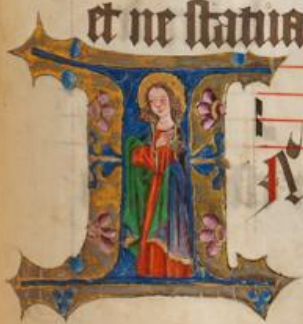 et ne statua
I A